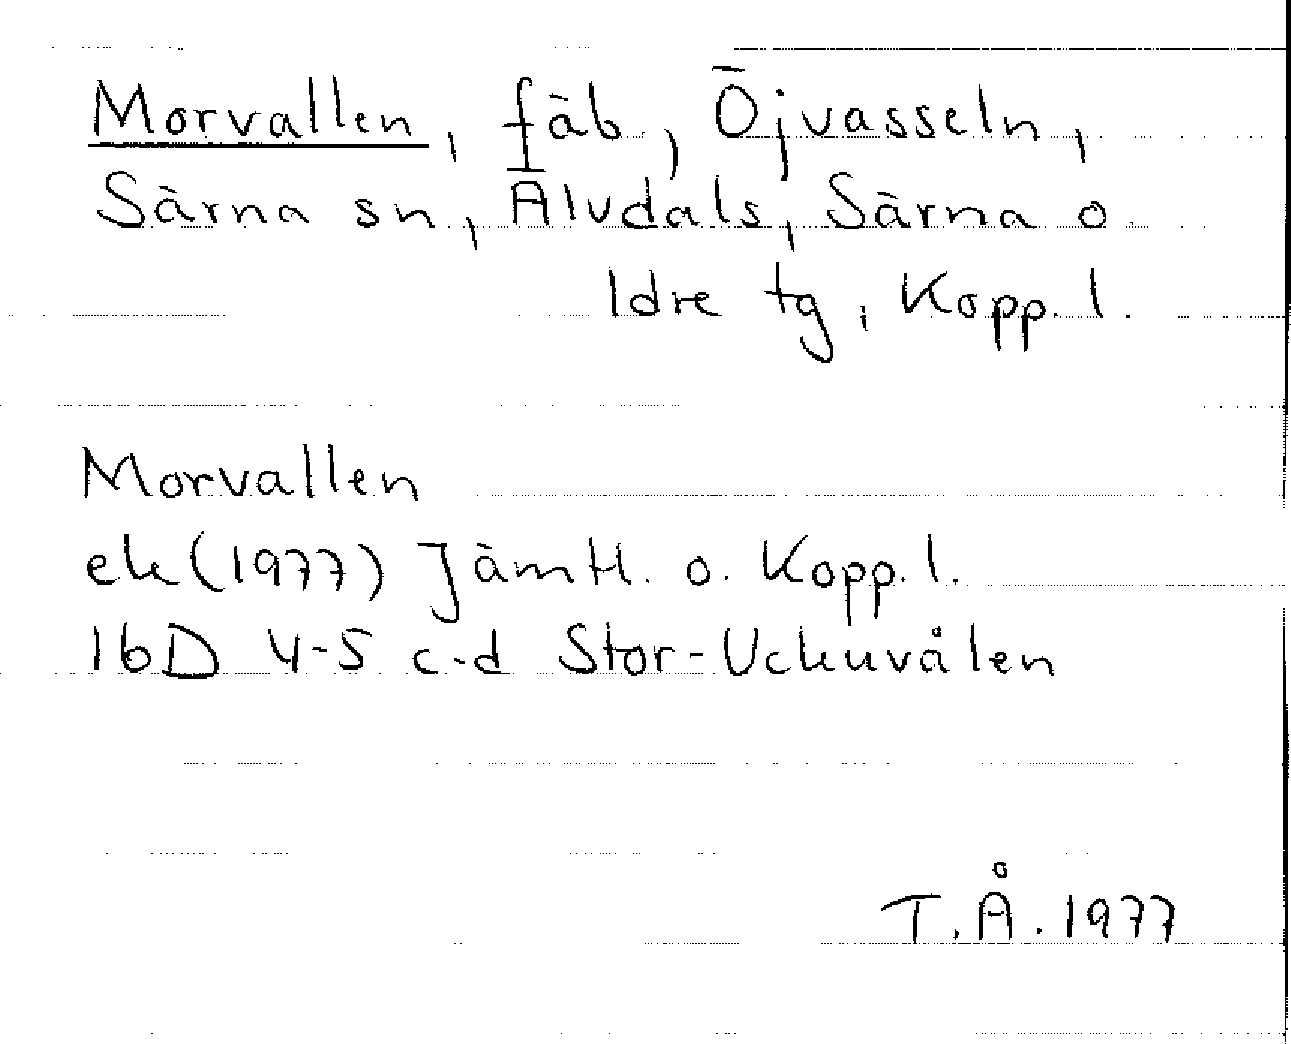 Morvallen, fäb, Öjvasseln,
Särna sn, Älvdals, Särna o.
Idre tg, Kopp. l.
Morvallen
ek (1977) Jämtl. o. Kopp. l.
16D 4-5 c-d Stor-Uckuvålen
T.Å. 1977